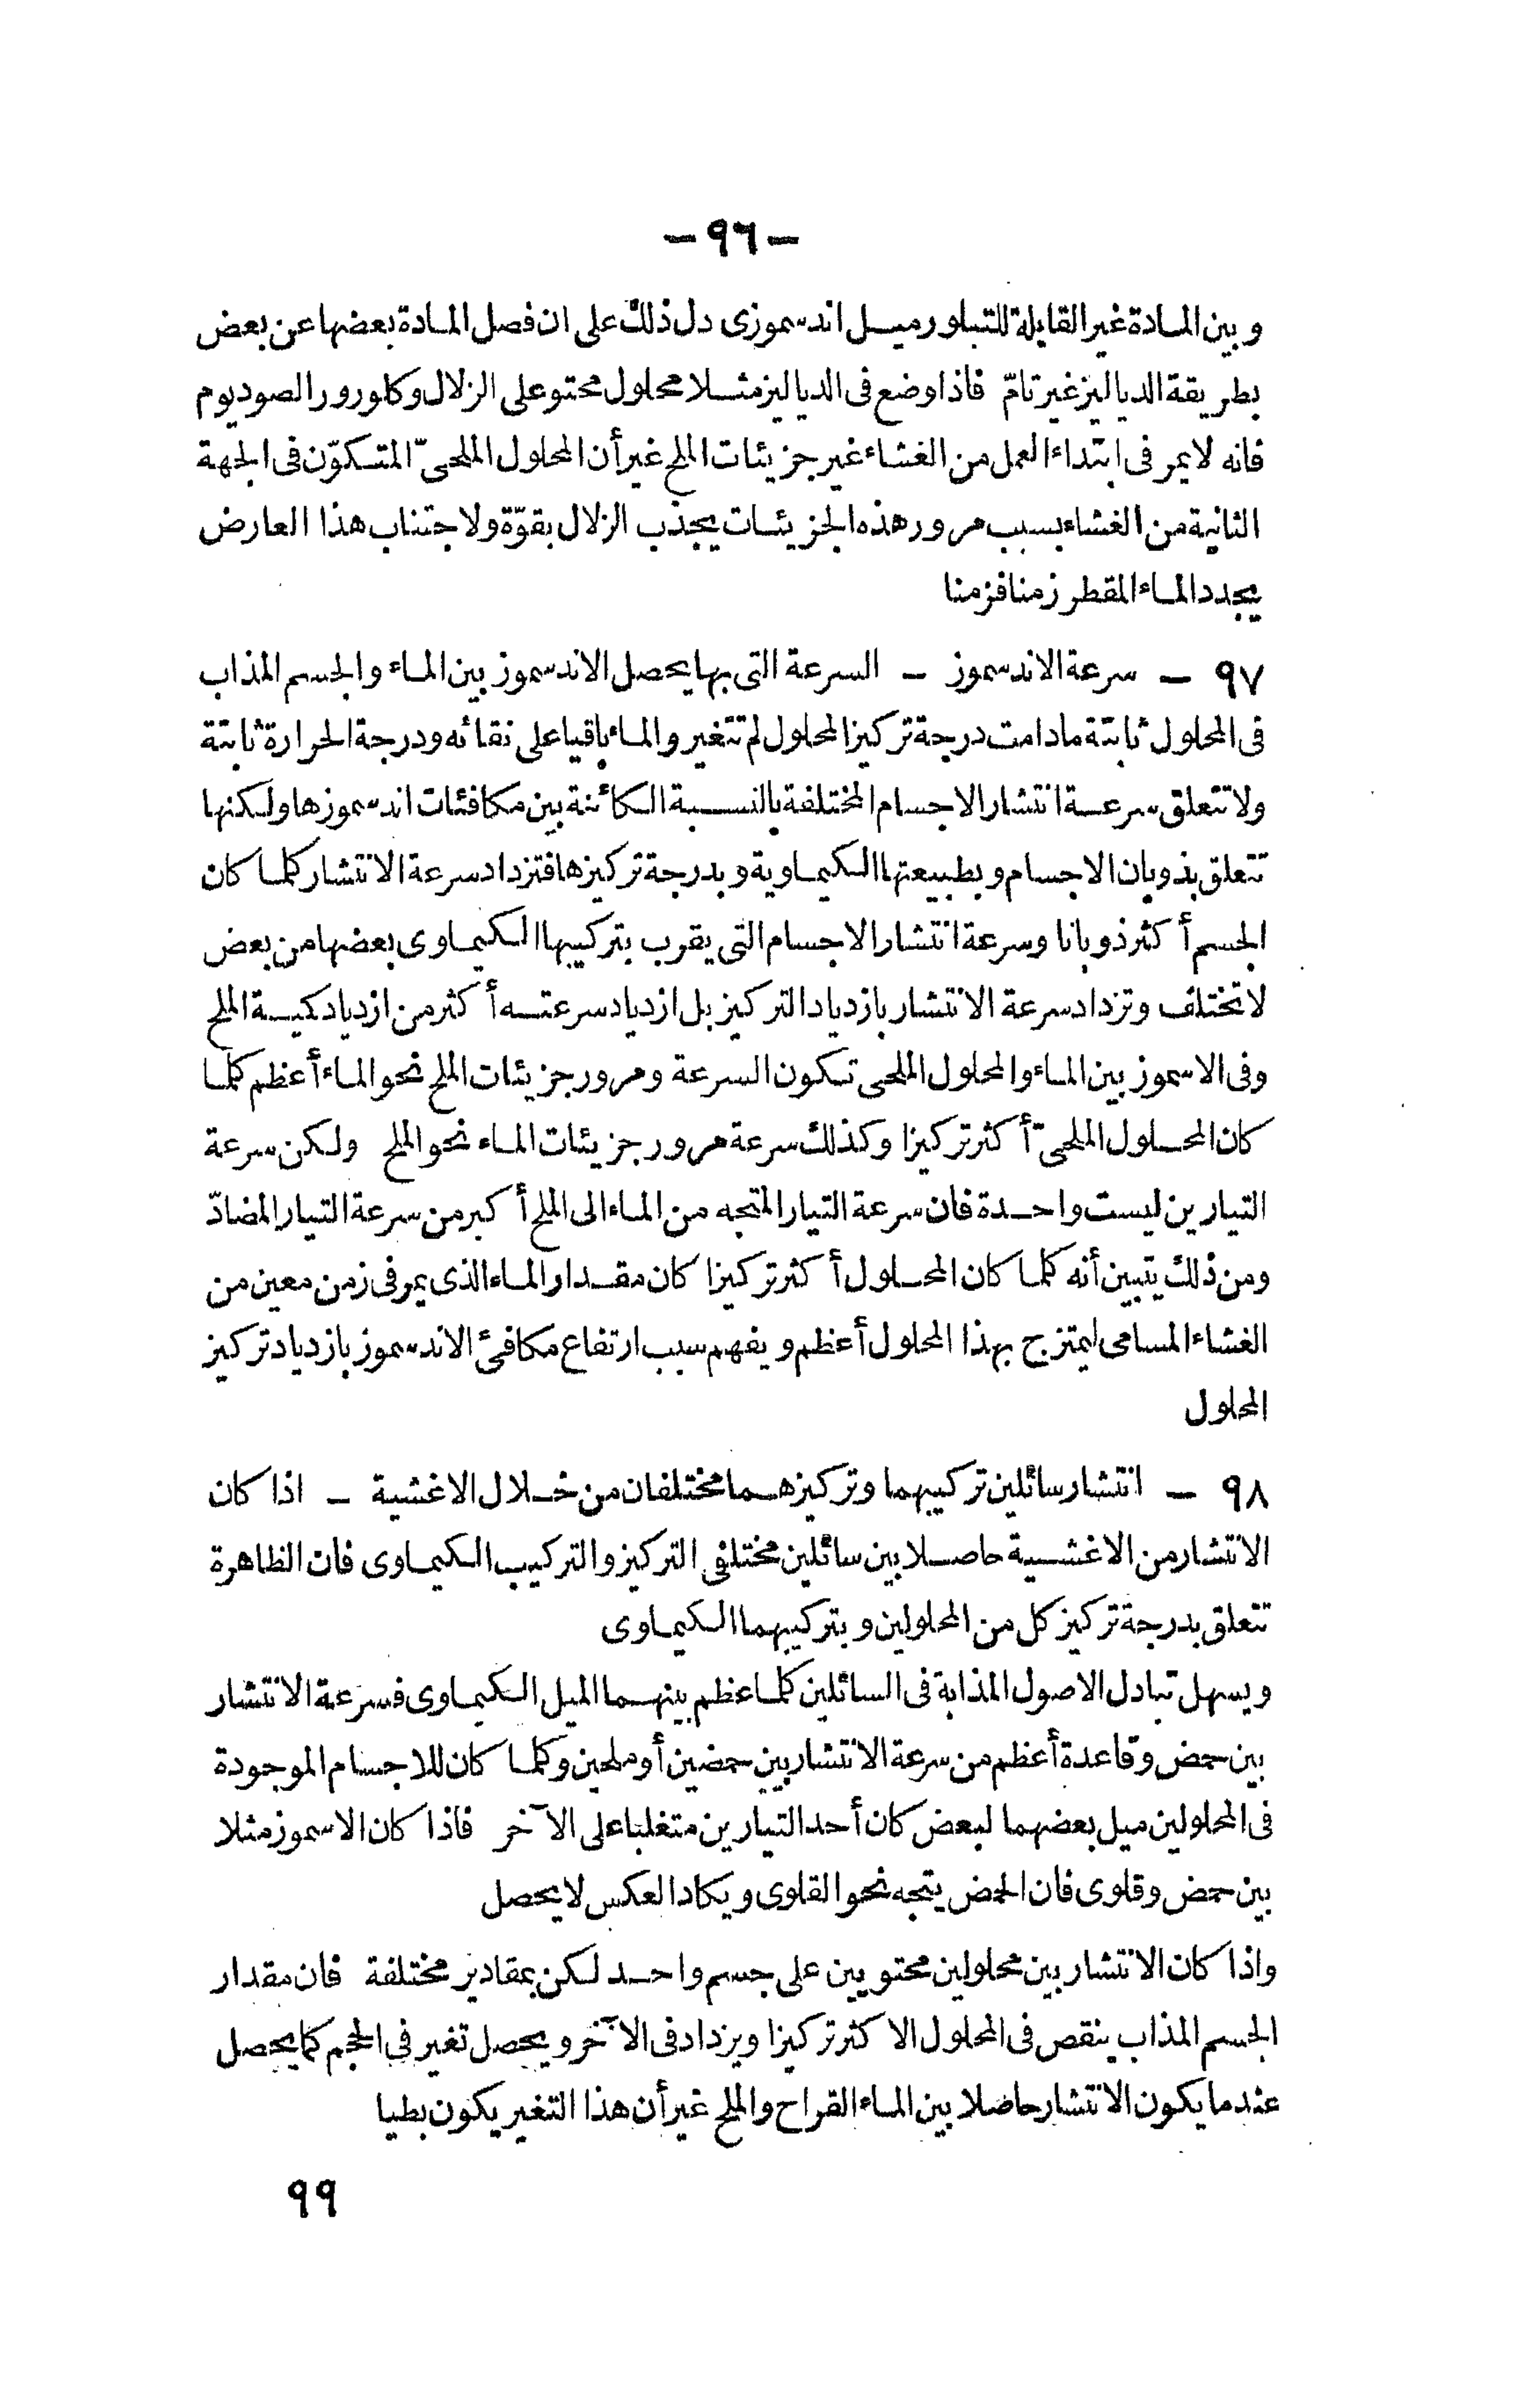 — ٩٦ —
وبين المادة غير القابلة للتبلور ميل اندسموزى دل ذلك على ان فصل المادة بعضها عن بعض
بطريقة الدياليز غير تامّ فاذا وضع فى الدياليز مثلا محلول محتو على الزلال وكلورور الصوديوم
فانه لايمر فى ابتداء العمل من الغشاء غير جزيئات الملح غير أن المحلول الملحىّ المتكوّن فى الجهة
الثانية من الغشاء بسبب مرور هذه الجزيئات يجذب الزلال بقوّة ولاجتناب هذا العارض
يجدد الماء المقطر زمنا فزمنا
٩٧ — سرعة الاندسموز — السرعة التى بها يحصل الاندسموز بين الماء والجسم المذاب
فى المحلول ثابتة مادامت درجة تركيز المحلول لم تتغير والماء باقيا على نقائه ودرجة الحرارة ثابتة
ولا تتعلق سرعة انتشار الاجسام المختلفة بالنسبة الكائنة بين مكافئات اندسموزها ولكنها
تتعلق بذوبان الاجسام وبطبيعتها الكيماوية وبدرجة تركيزها فتزداد سرعة الانتشار كلما كان
الجسم أكثر ذوبانا وسرعة انتشار الاجسام التى يقرب بتركيبها الكيماوى بعضها من بعض
لاتختلف وتزداد سرعة الانتشار بازدياد التركيز بل ازدياد سرعته أكثر من ازدياد كمية الملح
وفى الاسموز بين الماء والمحلول الملحى تكون السرعة ومرور جزيئات الملح نحو الماء أعظم كلما
كان المحلول الملحىّ أكثر تركيزا وكذلك سرعة مرور جزيئات الماء نحو الملح ولكن سرعة
التيارين ليست واحدة فان سرعة التيار المتجه من الماء الى الملح أكبر من سرعة التيار المضادّ
ومن ذلك يتبين أنه كلما كان المحلول أكثر تركيزا كان مقدار الماء الذى يمر فى زمن معين من
الغشاء المسامى ليمتزج بهذا المحلول أعظم ويفهم سبب ارتفاع مكافئ الاندسموز بازدياد تركيز
المحلول
٩٨ — انتشار سائلين تركيبهما وتركيزهما مختلفان من خلال الاغشية — اذا كان
الانتشار من الاغشية حاصلا بين سائلين مختلفى التركيز والتركيب الكيماوى فان الظاهرة
تتعلق بدرجة تركيز كل من المحلولين وبتركيبهما الكيماوى
ويسهل تبادل الاصول المذابة فى السائلين كلما عظم بينهما الميل الكيماوى فسرعة الانتشار
بين حمض وقاعدة أعظم من سرعة الانتشار بين حمضين أو ملحين وكلما كان للاجسام الموجودة
فى المحلولين ميل بعضهما لبعض كان أحد التيارين متغلبا على الآخر فاذا كان الاسموز مثلا
بين حمض وقلوى فان الحمض يتجه نحو القلوى ويكاد العكس لايحصل
واذا كان الانتشار بين محلولين محتويين على جسم واحد لكن بمقادير مختلفة فان مقدار
الجسم المذاب ينقص فى المحلول الاكثر تركيزا ويزداد فى الآخر ويحصل تغير فى الحجم كما يحصل
عندما يكون الانتشار حاصلا بين الماء القراح والملح غير أن هذا التغير يكون بطيا
٩٩